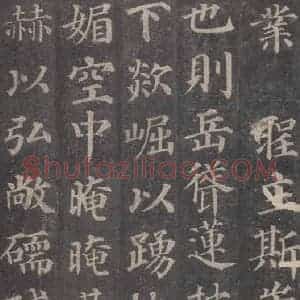 業 聖主斯
也則岳聳蓮
下欻崛以踴
媚空中晻晻
赫以弘敞礝
Shufaziliao.com